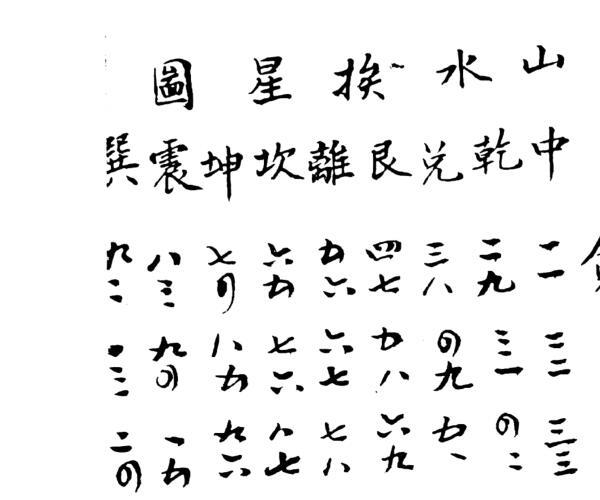 山水挨星圖
中乾兌艮離坎坤震巽
一一 二九 三八 四七 五六 六五 七四 八三 九二
二二 三一 四九 五八 六七 七六 八五 九四 一三
三三 四二 五一 六九 七八 八七 九六 一五 二四